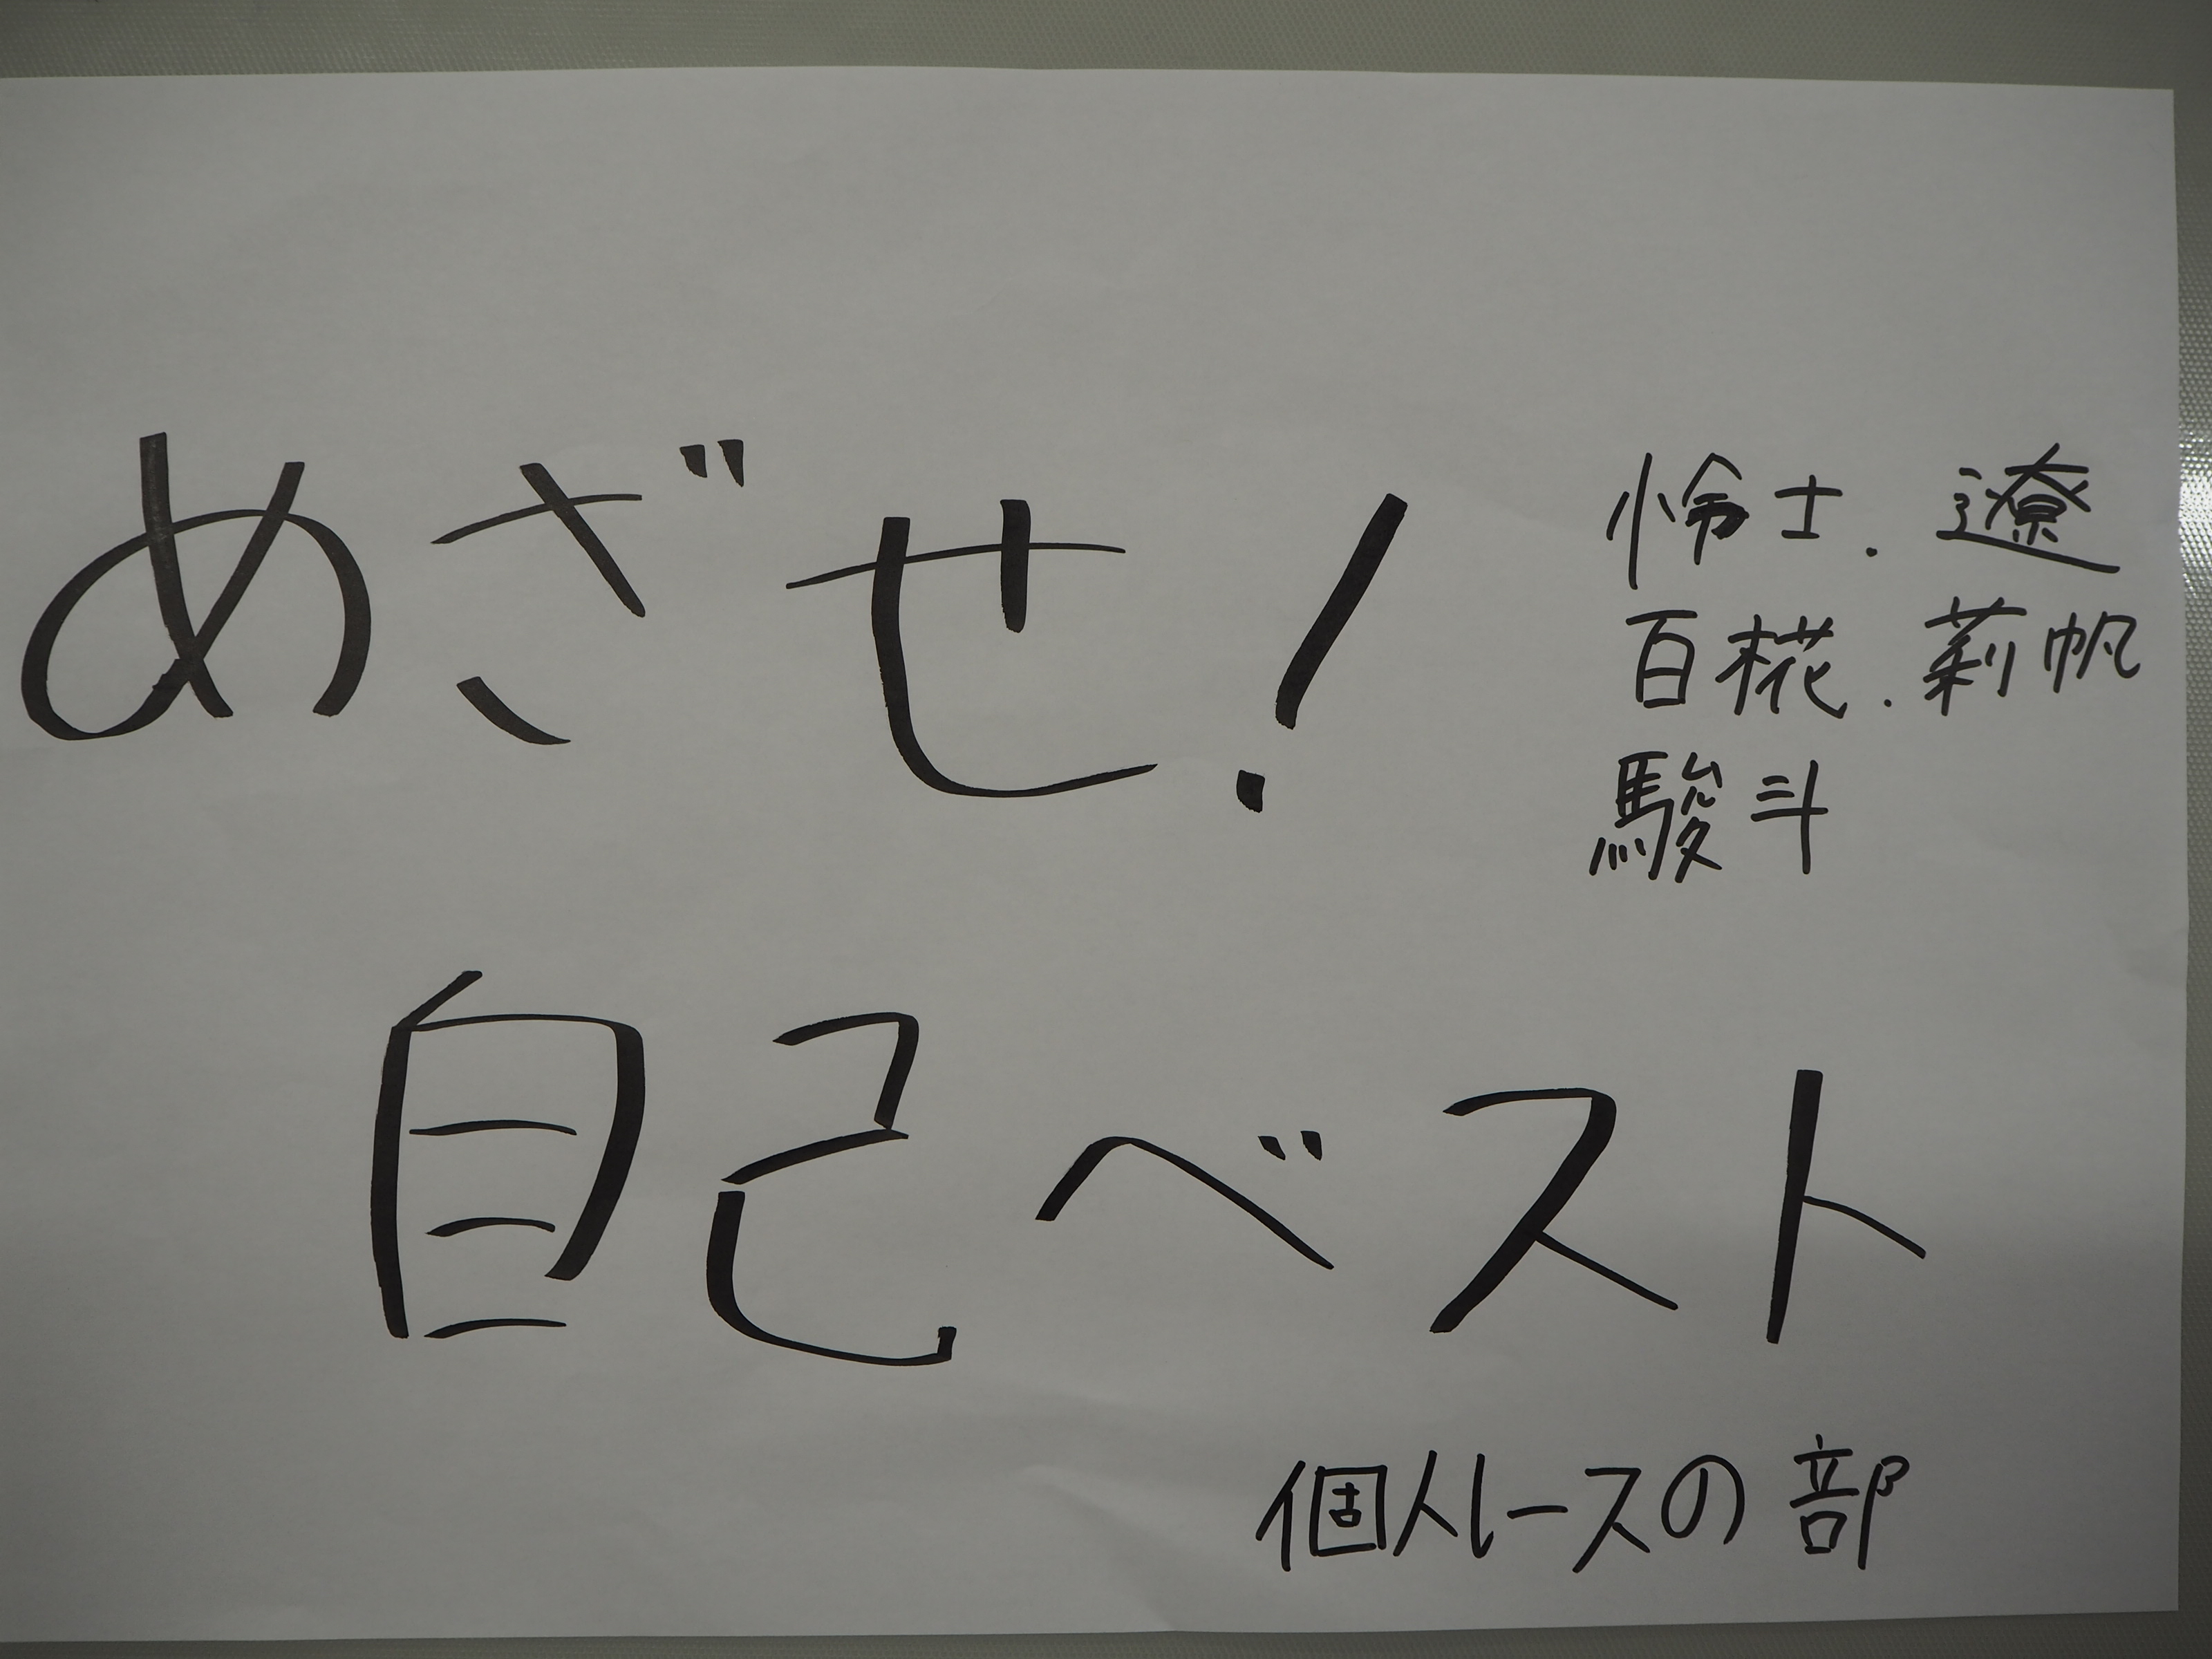 めざせ!
自己ベスト
怜士.遼
百椛.莉帆
駿斗
個人レースの部